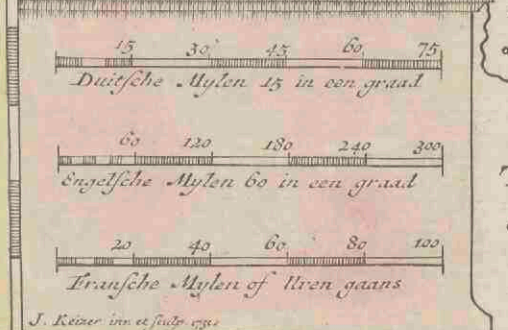 15 30 45 60 75
Duitsche Mylen 15 in een graad
60 120 180 240 300
Engelsche Mylen 60 in een graad
20 40 60 80 100
Fransche Mylen of Uren gaans
J. Keizer inv. et sculp.